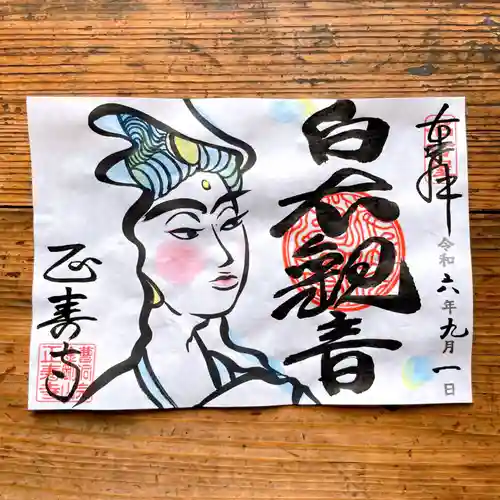 奉拝
令和六年九月一日
白衣観音
正寿寺